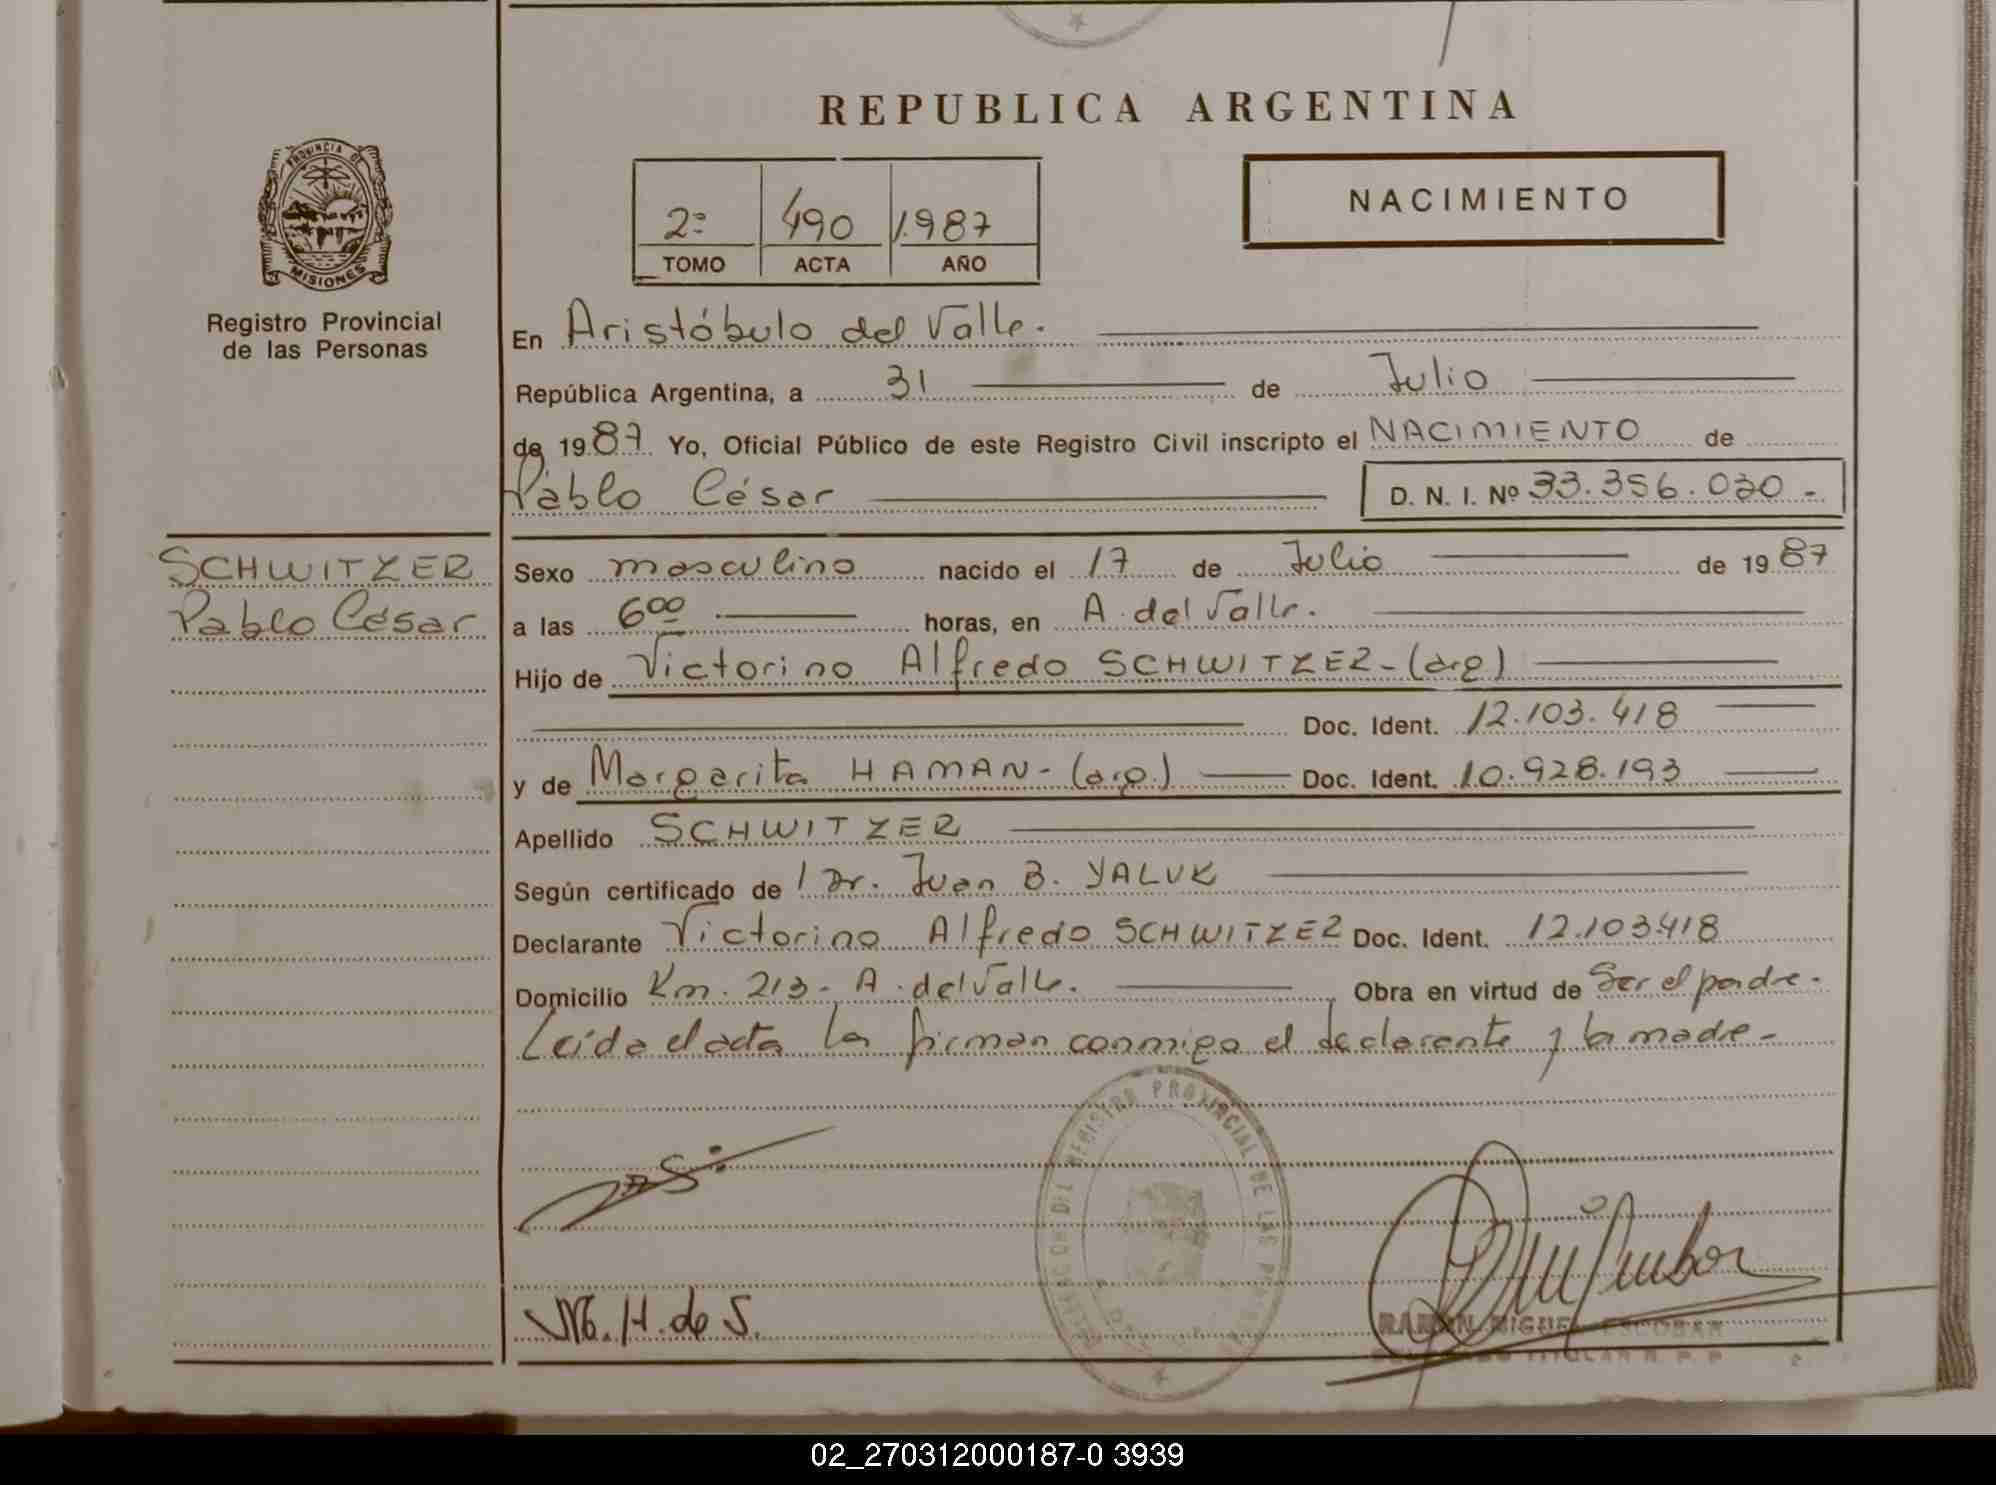 REPUBLICA ARGENTINA
PROVINCIA DE
MISIONES
Registro Provincial
de las Personas
2º 490 1.987
TOMO ACTA AÑO
NACIMIENTO
En Aristóbulo del Valle.
República Argentina, a 31 de Julio
de 1987 Yo, Oficial Público de este Registro Civil inscripto el NACIMIENTO de
Pablo César D. N. I. Nº 33.356.020-
SCHWITZER
Pablo César
Sexo masculino nacido el 17 de Julio de 1987
a las 6ºº horas, en A. del Valle.
Hijo de Victorino Alfredo SCHWITZER-(arg)
Doc. Ident. 12.103.418
y de Margarita HAMAN-(arg.) Doc. Ident. 10.928.193
Apellido SCHWITZER
Según certificado de / Dr. Juan B. YALUK
Declarante Victorino Alfredo SCHWITZER Doc. Ident. 12.103418
Domicilio Km. 213- A. del Valle. Obra en virtud de Ser el padre.
Leída el acta la firman conmigo el declarante y la madre-
REGISTRO PROVINCIAL DE LAS
M. H. de S.
RAMON MIGUEL ESCOBAR
TITULAR R. P. P.
02_270312000187-0 3939